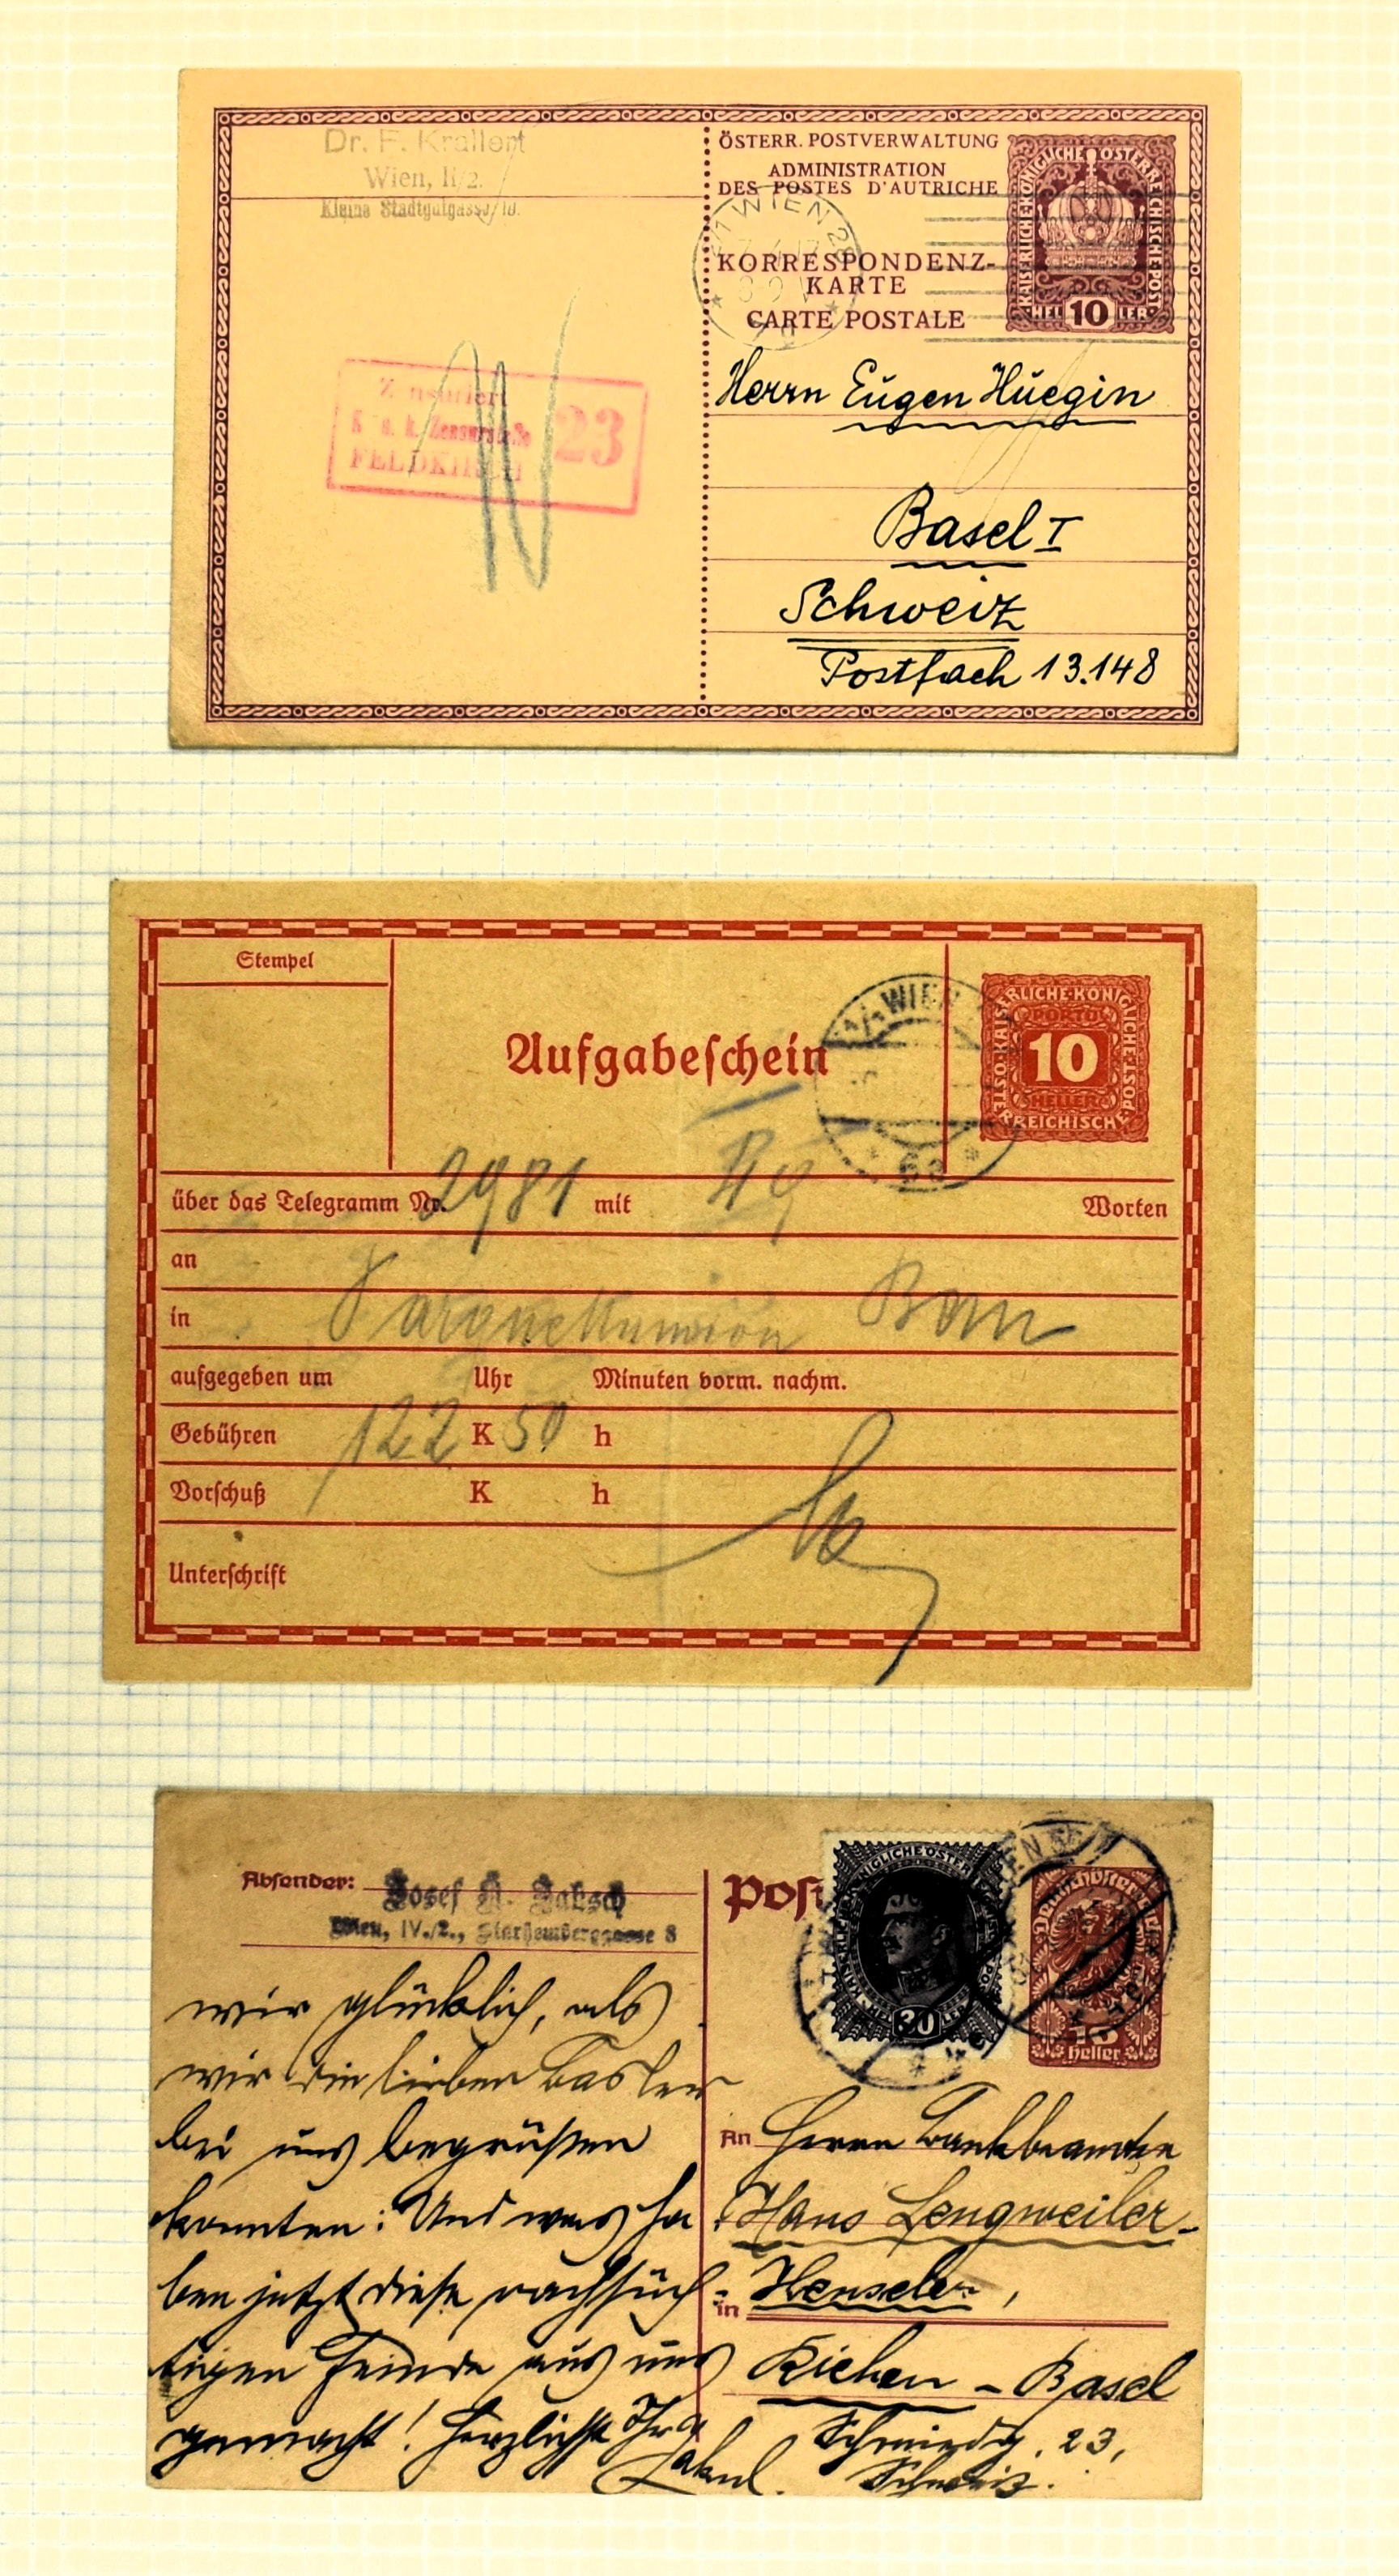 Dr. F. Krallert
Wien, II/2.
Kleine Stadtgutgasse 10.
ÖSTERR. POSTVERWALTUNG
ADMINISTRATION
DES POSTES D'AUTRICHE
KORRESPONDENZ-
KARTE
CARTE POSTALE
KAISERLICHE·KÖNIGLICHE·ÖSTERREICHISCHE·POST
HEL 10 LER
WIEN
Zensuriert
K. u. k. Zensurstelle
FELDKIRCH
23
Herrn Eugen Hüegin
Basel I
Schweiz
Postfach 13.148
Stempel
Aufgabeschein
WIEN
68
KAISERLICHE·KÖNIGLICHE
OSTERREICHISCHE POST
PORTO
10
HELLER
über das Telegramm Nr. 2981 mit Worten
an
in Bern
aufgegeben um Uhr Minuten vorm. nachm.
Gebühren 122 K 50 h
Vorschuß K h
Unterschrift
Absender: Josef A. Jaksch
Wien, IV./2., Starhemberggasse 8
Post
30
15
Heller
wir glücklich, als
wir die lieben Basler
bei uns begrüßen
konnten! Und was ha
ben jetzt diese rachsüch-
tigen Feinde aus uns
gemacht! Herzlichst Ihr
An Herrn Bankbeamten
Hans Lengweiler-
in Henseler,
Riehen - Basel
Schmiedg. 23,
Schweiz.